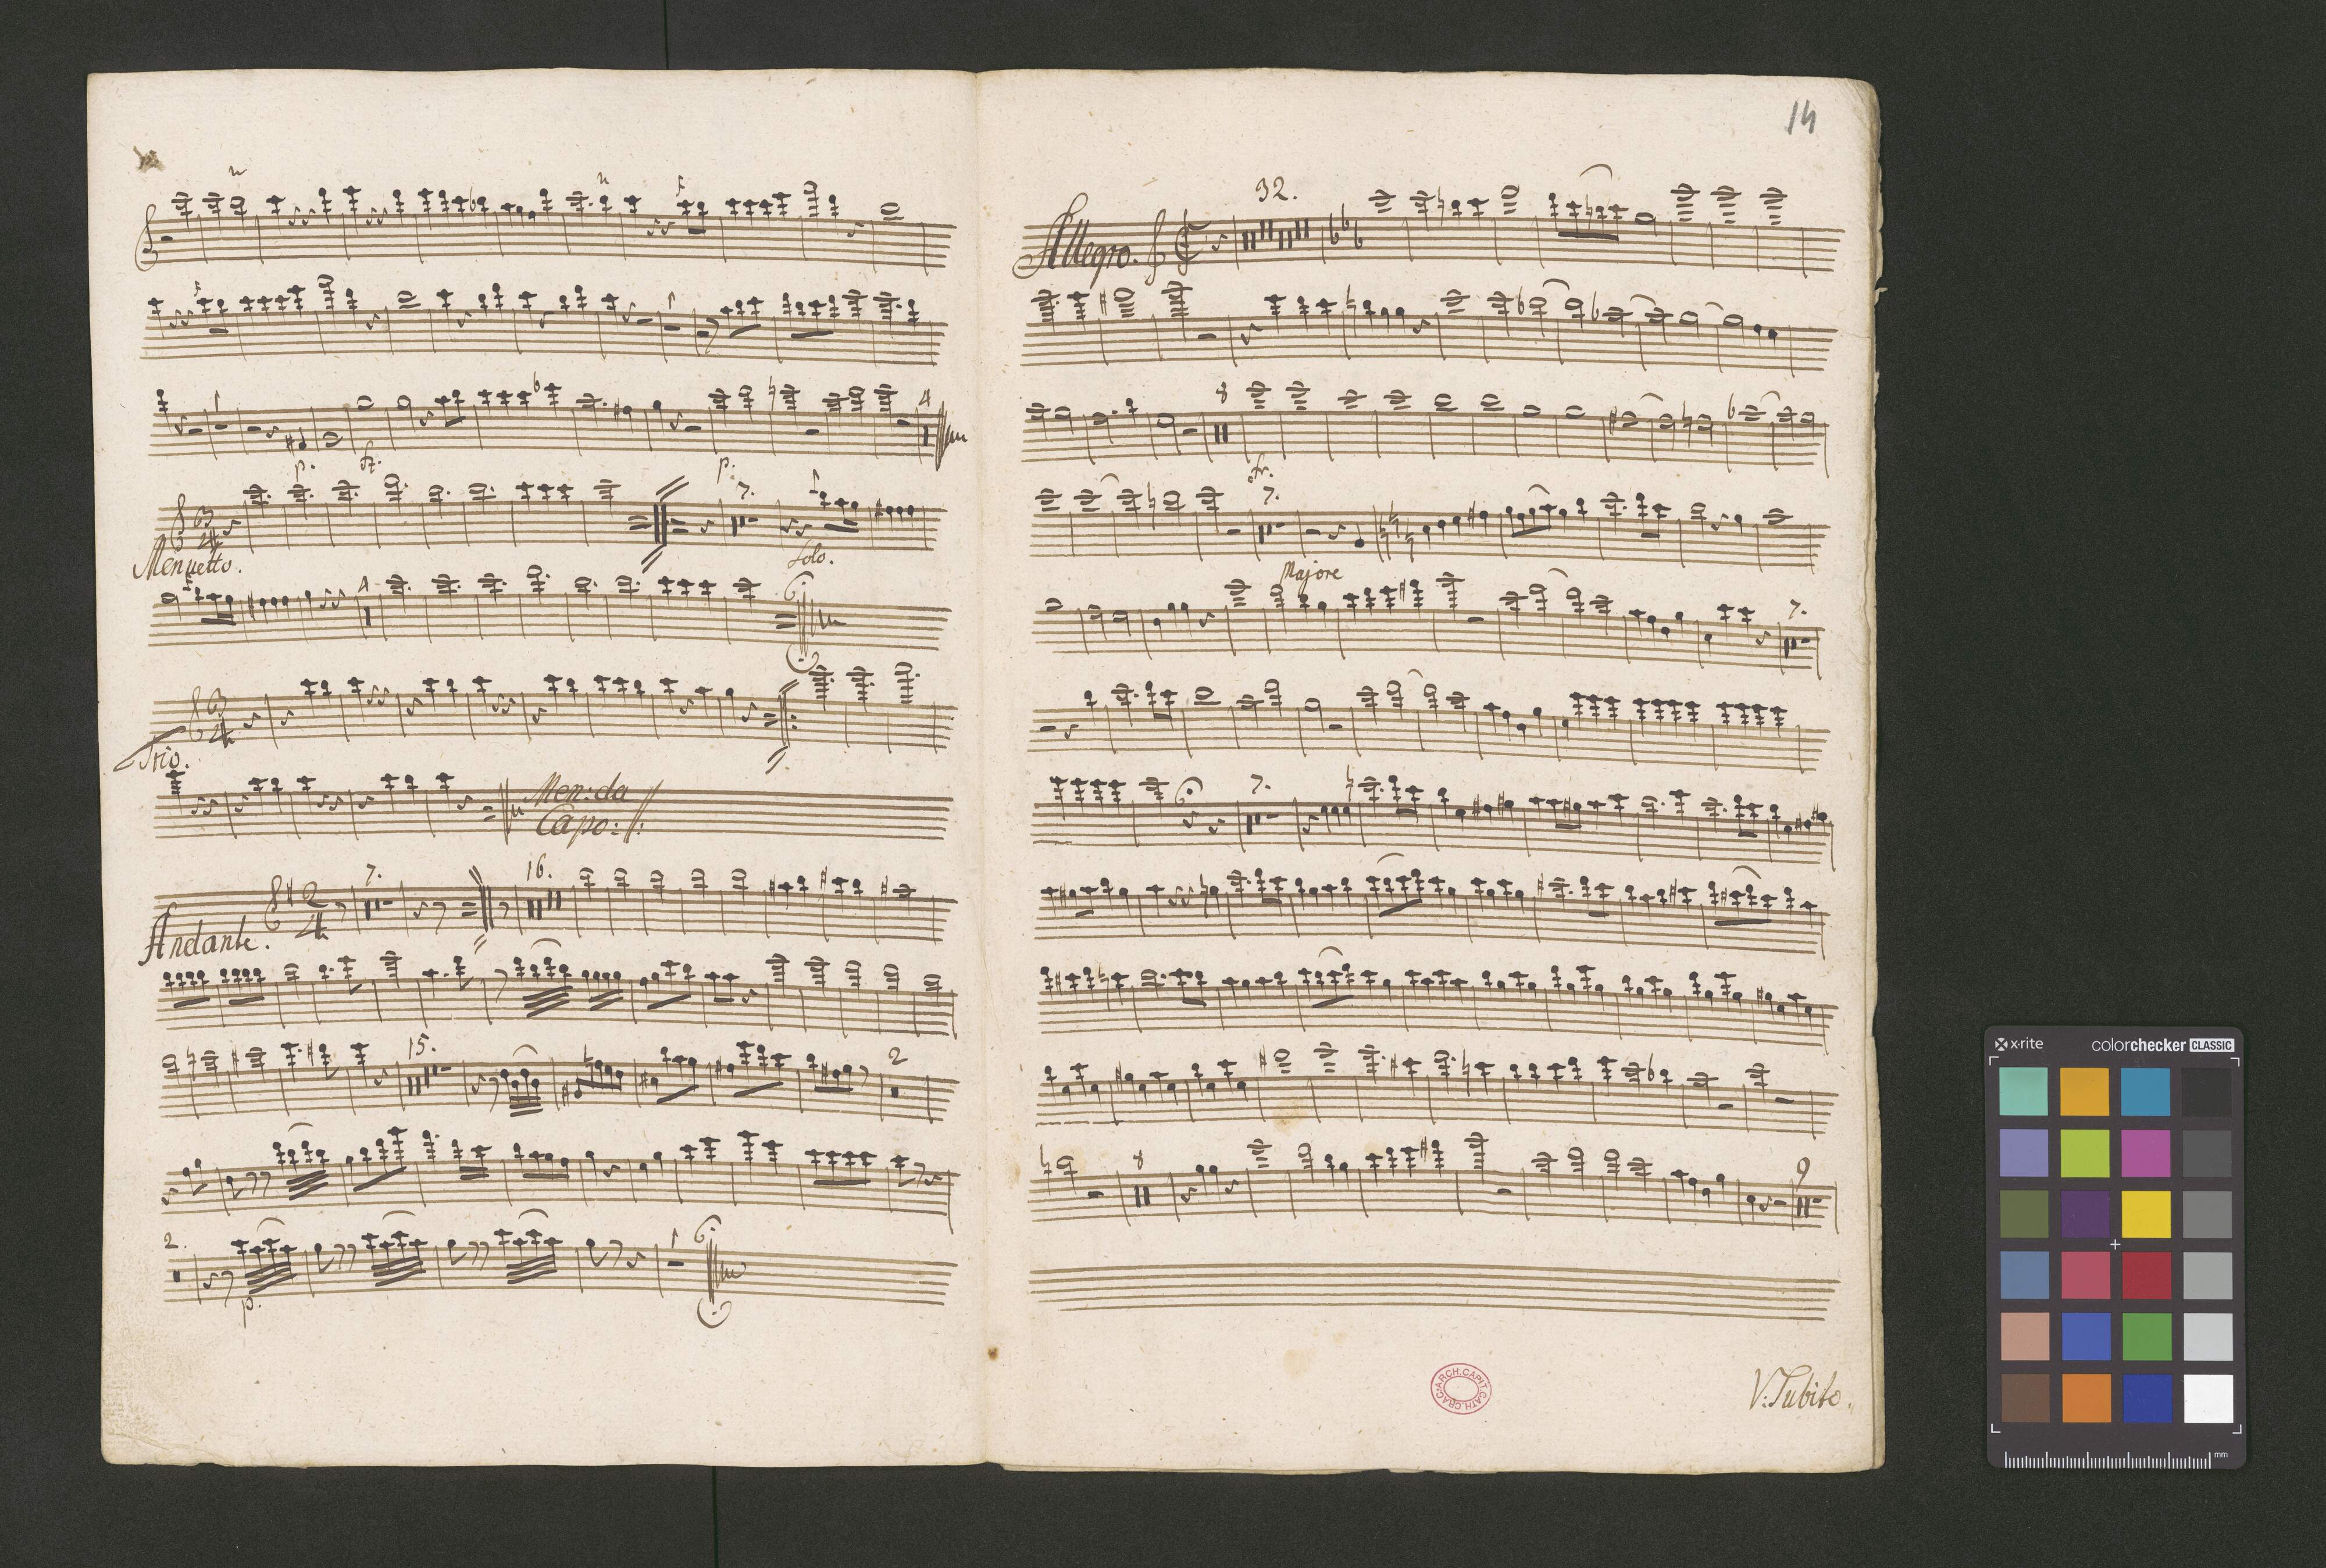 p. fz. p. 4
7.
Menuetto. Solo.
4
Trio.
Men: da
Capo:
7. 16.
Andante.
15. 2
2.
p.
14
32.
Allegro.
8
fr.
7.
Majore
7.
7.
8 9
ARCH. CAPIT. CATH. CRAC.
V: Subito.
x-rite colorchecker CLASSIC
mm